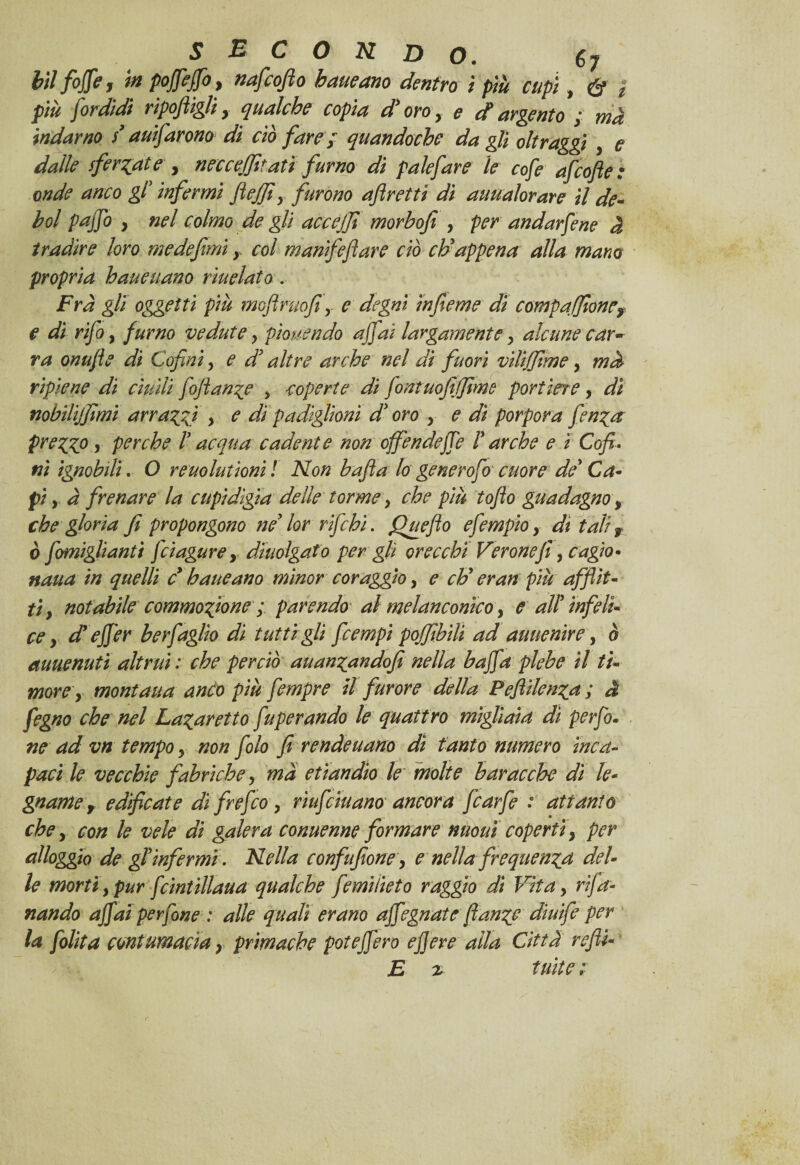 SECONDO. 67
bil foſſe, in poſſeſſo, naſcoſto haueano dentro i più cupi, & i
più ſordidi ripoſtigli, qualche copia d'oro, e d'argento; mà
indarno s'auiſarono di ciò fare; quandoche da gli oltraggi, e
dalle sferzate, necceſſitati furno di paleſare le coſe aſcoſte:
onde anco gl'infermi ſteſſi, furono aſtretti di auualorare il de-
bol paſſo, nel colmo de gli acceſſi morboſi, per andarſene à
tradire loro medeſimi, col manifeſtare ciò ch'appena alla mano
propria haueuano riuelato.
Frà gli oggetti più moſtruoſi, e degni inſieme di compaſſione,
e di riſo, furno vedute, piouendo aſſai largamente, alcune car-
ra onuſte di Cofini, e d'altre arche nel di fuori viliſſime, mà
ripiene di ciuili ſoſtanze, coperte di ſontuoſiſſime portiere, di
nobiliſſimi arrazzi, e di padiglioni d'oro, e di porpora ſenza
prezzo, perche l'acqua cadente non offendeſſe l'arche e i Cofi-
ni ignobili. O reuolutioni! Non baſta lo generoſo cuore de' Ca-
pi, à frenare la cupidigia delle torme, che più toſto guadagno,
che gloria ſi propongono ne' lor riſchi. Queſto eſempio, di tali,
ò ſomiglianti ſciagure, diuolgato per gli orecchi Veroneſi, cagio-
naua in quelli c'haueano minor coraggio, e ch'eran più afflit-
ti, notabile commozione; parendo al melanconico, e all'infeli-
ce, d'eſſer berſaglio di tutti gli ſcempi poſſibili ad auuenire, ò
auuenuti altrui: che perciò auanzandoſi nella baſſa plebe il ti-
more, montaua anco più ſempre il furore della Peſtilenza; à
ſegno che nel Lazaretto ſuperando le quattro migliaia di perſo-
ne ad vn tempo, non ſolo ſi rendeuano di tanto numero inca-
paci le vecchie fabriche, mà etiandio le molte baracche di le-
gname, edificate di freſco, riuſciuano ancora ſcarſe: attanto
che, con le vele di galera conuenne formare nuoui coperti, per
alloggio de gl'infermi. Nella confuſione, e nella frequenza del-
le morti, pur ſcintillaua qualche ſemilieto raggio di Vita, riſa-
nando aſſai perſone: alle quali erano aſſegnate ſtanze diuiſe per
la ſolita contumacia, primache poteſſero eſſere alla Città reſti-
E 2 tuite;